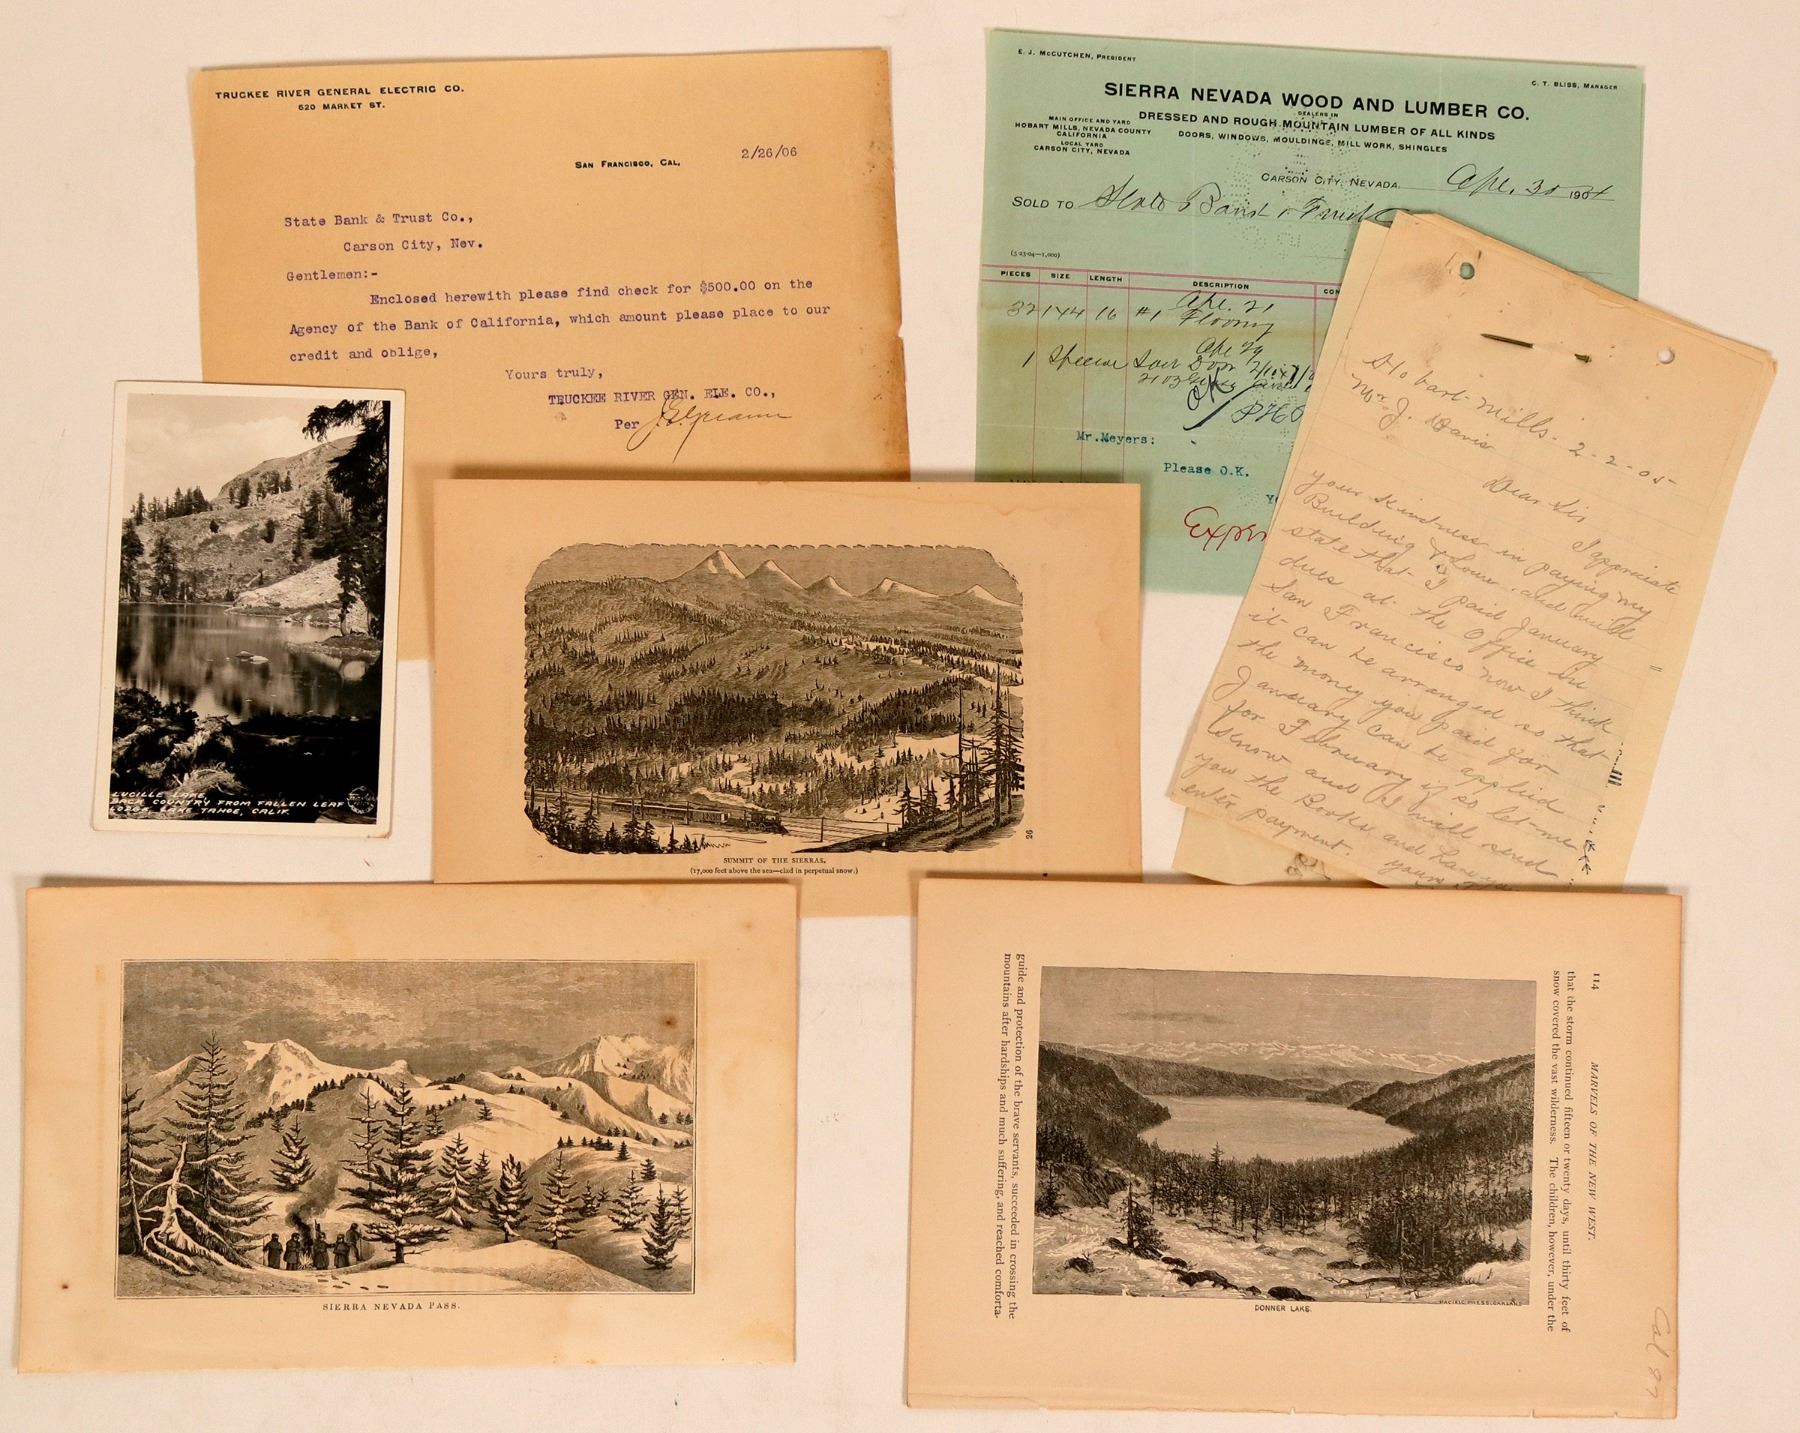 TRUCKEE RIVER GENERAL ELECTRIC CO.
620 MARKET ST.
SAN FRANCISCO, CAL, 2/26/06
State Bank & Trust Co.,
Carson City, Nev.
Gentlemen:-
Enclosed herewith please find check for $500.00 on the
Agency of the Bank of California, which amount please place to our
credit and oblige,
Yours truly,
TRUCKEE RIVER GEN. ELE. CO.,
Per
E. J. MCCUTCHEN, PRESIDENT
C. T. BLISS, MANAGER
SIERRA NEVADA WOOD AND LUMBER CO.
DEALERS IN
DRESSED AND ROUGH MOUNTAIN LUMBER OF ALL KINDS
DOORS, WINDOWS, MOULDINGS, MILL WORK, SHINGLES
MAIN OFFICE AND YARD
HOBART MILLS, NEVADA COUNTY
CALIFORNIA
LOCAL YARD
CARSON CITY, NEVADA
CARSON CITY, NEVADA. Apr. 30 1904
SOLD TO State Bank & Trust
(5-23-04—1,000)
PIECES SIZE LENGTH DESCRIPTION CON
Apr. 21
32 1x4 16 #1 Flooring
Apr 29
1 Special Door
OK
Mr. Meyers:
Please O.K.
Yo
Expen
Hobart Mills - 2-2-05
Mr J. Davis
Dear Sir
I appreciate
your kindness in paying my
Building & Loan and will
state that I paid January
dues at the Office in
San Francisco now I think
it can be arranged so that
the money you paid for
January can be applied
for February if so let me
know and I will send
you the Books and have you
enter payment.
yours
LUCILLE LAKE,
BACK COUNTRY FROM FALLEN LEAF
LODGE, LAKE TAHOE, CALIF.
26
SUMMIT OF THE SIERRAS.
(17,000 feet above the sea—clad in perpetual snow.)
SIERRA NEVADA PASS.
114 MARVELS OF THE NEW WEST.
that the storm continued fifteen or twenty days, until thirty feet of
snow covered the vast wilderness. The children, however, under the
PACIFIC PRESS, OAKLAND
DONNER LAKE.
guide and protection of the brave servants, succeeded in crossing the
mountains after hardships and much suffering, and reached comforta-
Cal 87